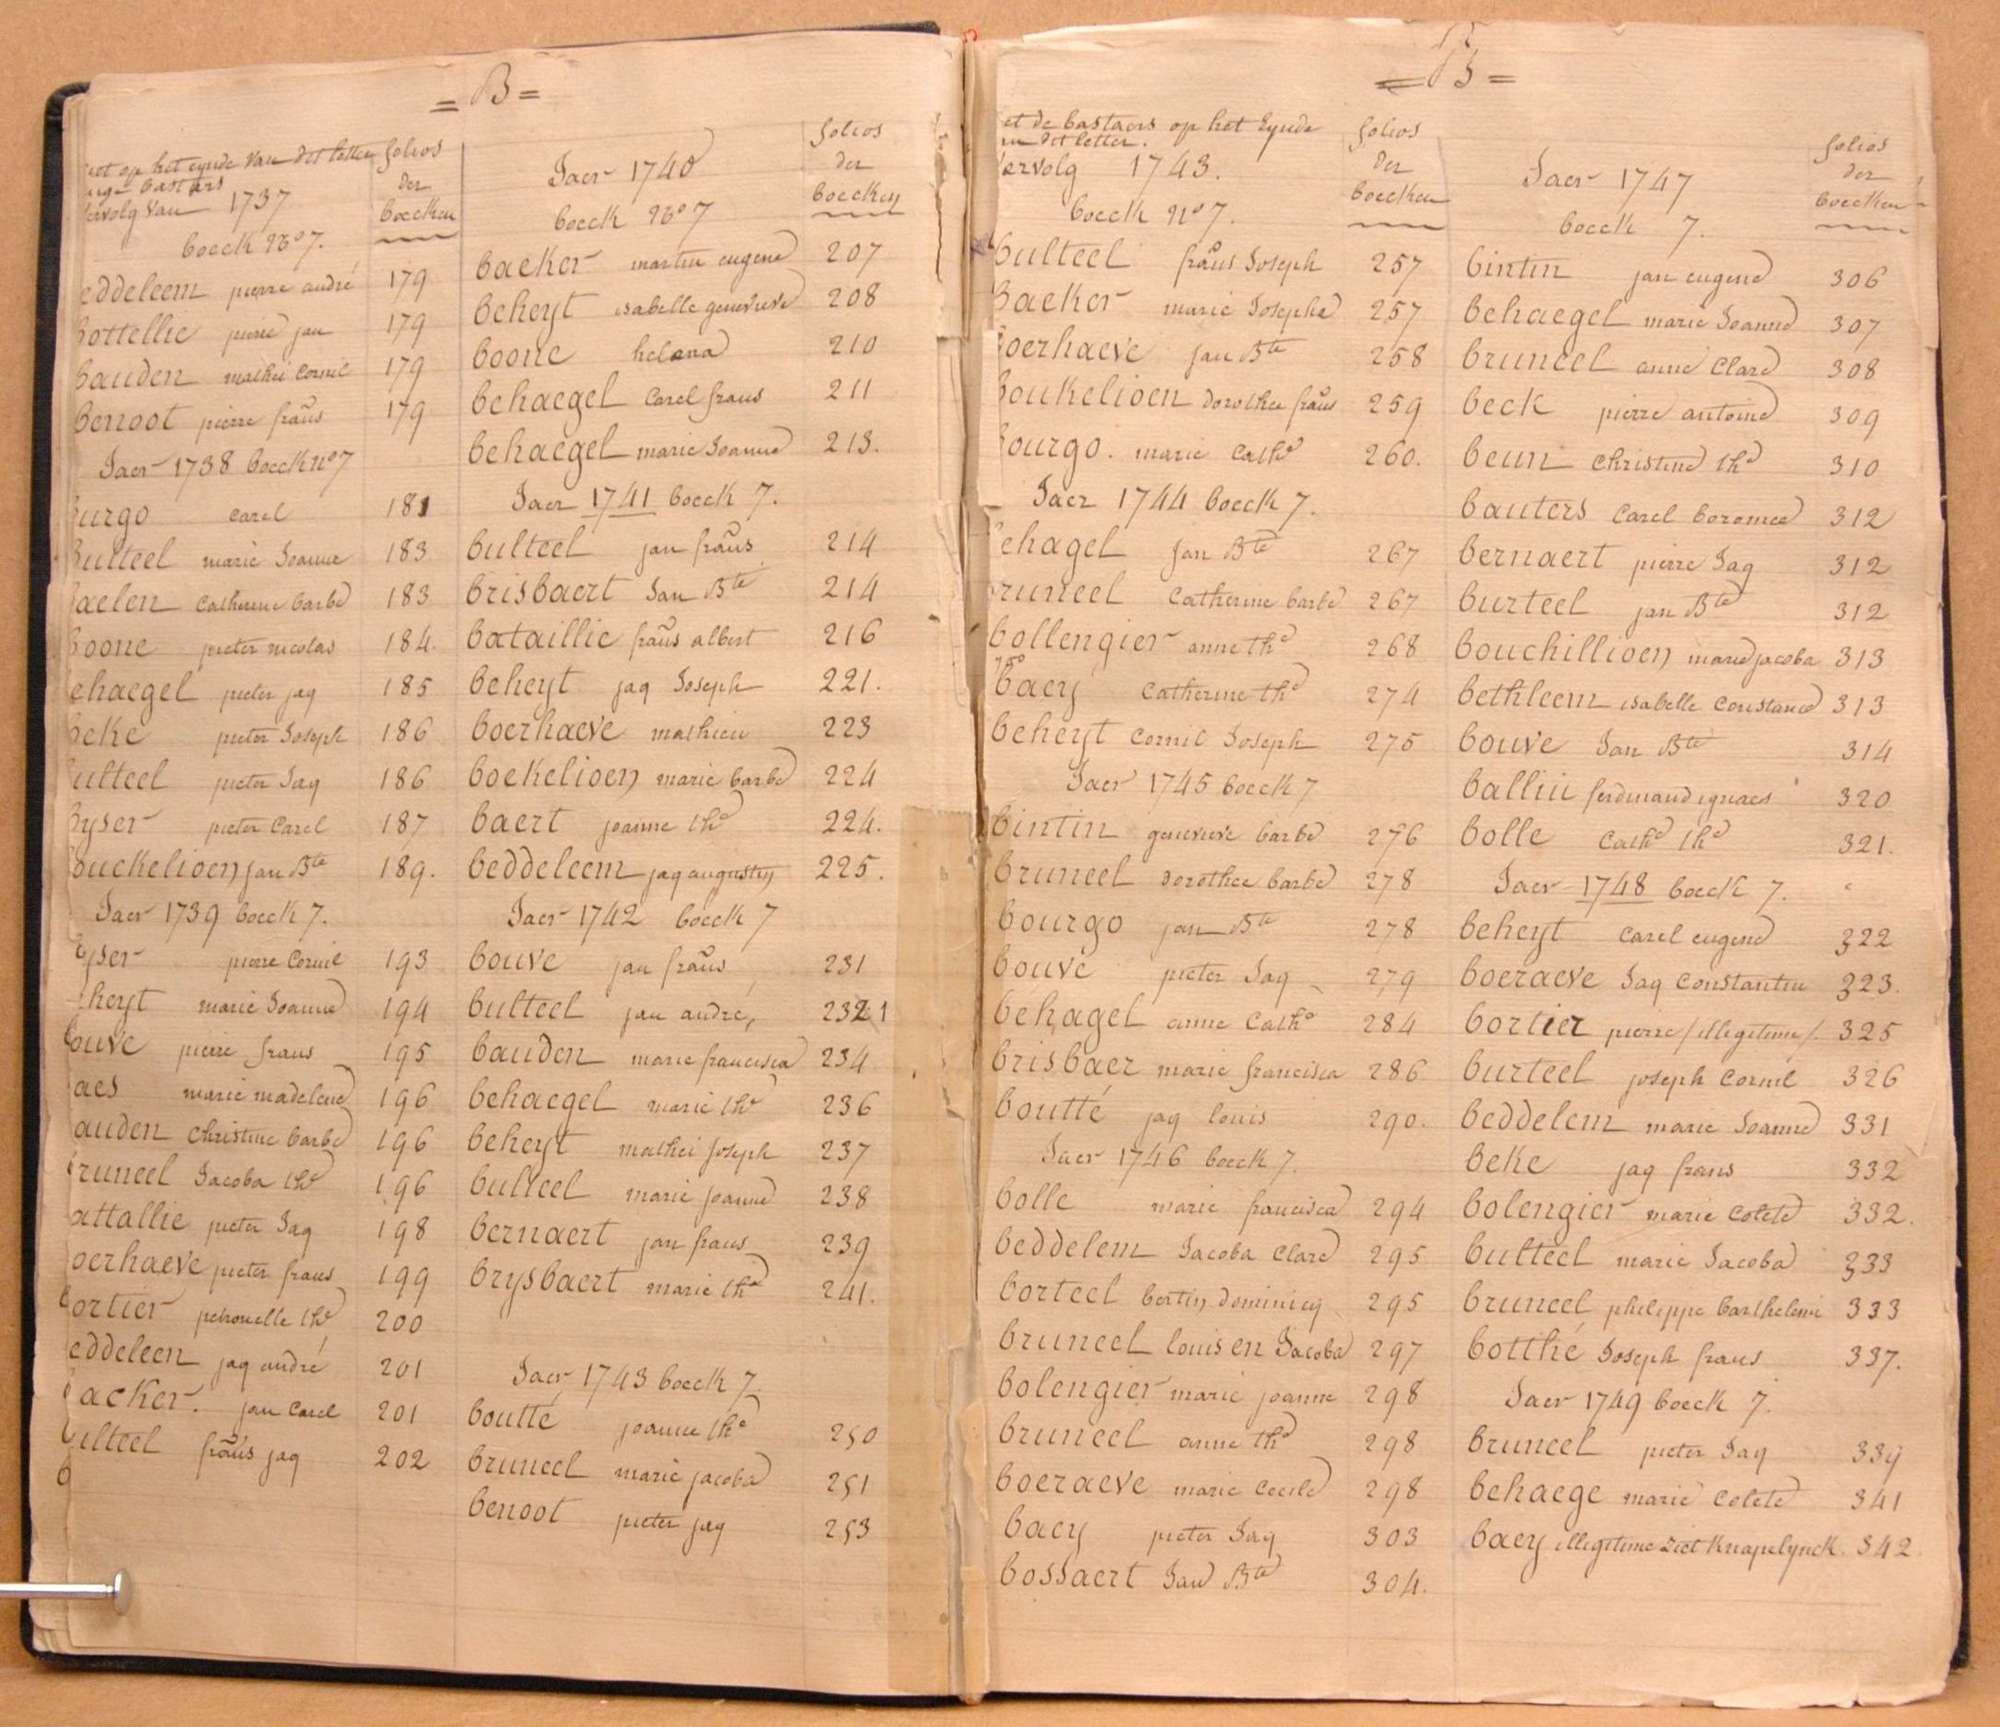 = B =
op het eynde Van dit letter
bastars
Vervolg Van 1737
boeck No 7.
folios
der
boecken
eddeleem pierre andré 179
bottellie pierre jan 179
bauden mathei Cornil 179
benoot pierre frañs 179
Jaer 1738 boeck no 7
burgo carel 181
bulteel marie Joanne 183
baelen Catherine barbe 183
boone pieter nicolas 184.
ehaegel pieter jaq 185
beke pieter Joseph 186
ulteel pieter Jaq 186
byser pieter Carel 187
bouckelioen jan Bte 189.
Jaer 1739 boeck 7.
yser pierre Cornil 193
heyt marie Joanne 194
bouve pierre frans 195
aes marie madelene 196
auden Christine barbe 196
bruneel Jacoba the 196
attallie pieter Jaq 198
oerhaeve pieter frans 199
bortier petronelle the 200
eddeleen jaq andré 201
backer. jan Carel 201
ulteel frañs jaq 202
b
Jaer 1740
boeck No 7
folios
der
boecken
backer martin eugene 207
beheyt isabelle genevieve 208
boone helena 210
behaegel Carel frans 211
behaegel marie Joanne 213.
Jaer 1741 boeck 7.
bulteel jan frañs 214
brisbaert Jan Bte 214
bataillie frañs albert 216
beheyt jaq Joseph 221.
boerhaeve mathieu 223
boekelioen marie barbe 224
baert joanne the 224.
beddeleem jaq augustin 225.
Jaer 1742 boeck 7
bouve jan frañs 231
bulteel jan andré, 2321
bauden marie francisca 234
behaegel marie the 236
beheyt mathei Joseph 237
bulteel marie joanne 238
bernaert jan frans 239
brysbaert marie the 241.
Jaer 1743 boeck 7
boutté joanne the 250
bruneel marie jacoba 251
benoot pieter jaq 253
= B =
et de bastaers op het Eynde
van dit letter.
Vervolg 1743.
boeck No 7.
folios
der
boecken
bulteel frañs Joseph 257
backer marie Josephe 257
boerhaeve jan Bte 258
boukelioen dorothee frañs 259
bourgo. marie Cathe 260.
Jaer 1744 boeck 7.
behagel Jan Bte 267
bruneel Catherine barbe 267
bollengier anne the 268
baey Catherine the 274
beheyt Cornil Joseph 275
Jaer 1745 boeck 7
bintin genevieve barbe 276
bruneel dorothee barbe 278
bourgo jan Bte 278
bouve pieter Jaq 279
behagel anne Cathe 284
brisbaer marie francisca 286
boutté jaq louis 290.
Jaer 1746 boeck 7.
bolle marie francisca 294
beddelem Jacoba Clare 295
borteel bertin dominicq 295
bruneel louis en Jacoba 297
bolengier marie joanne 298
bruneel anne the 298
boeraeve marie Cecile 298
baey pieter Jaq 303
bossaert Jan Bte 304.
Jaer 1747
boeck 7.
folios
der
boecken
bintin jan eugene 306
behaegel marie Joanne 307
bruneel anne Clare 308
beck pierre antoine 309
beun Christine the 310
bauters Carel boromee 312
bernaert pierre Jaq 312
burteel jan Bte 312
bouchillioen marie jacoba 313
bethleem isabelle Constance 313
bouve Jan Bte 314
ballin ferdinand ignaes 320
bolle Cathe the 321.
Jaer 1748 boeck 7.
beheyt Carel eugene 322
boeraeve Jaq Constantin 323.
bortier pierre /illegitime/. 325
burteel joseph Cornil 326
beddelem marie Joanne 331
beke jaq frans 332
bolengier marie Colete 332.
bulteel marie Jacoba 333
bruneel philippe barthelemi 333
botthé Joseph frans 337.
Jaer 1749 boeck 7.
bruneel pieter Jaq 339
behaege marie Colete 341
baey illegitime ziet Knapelynck. 342